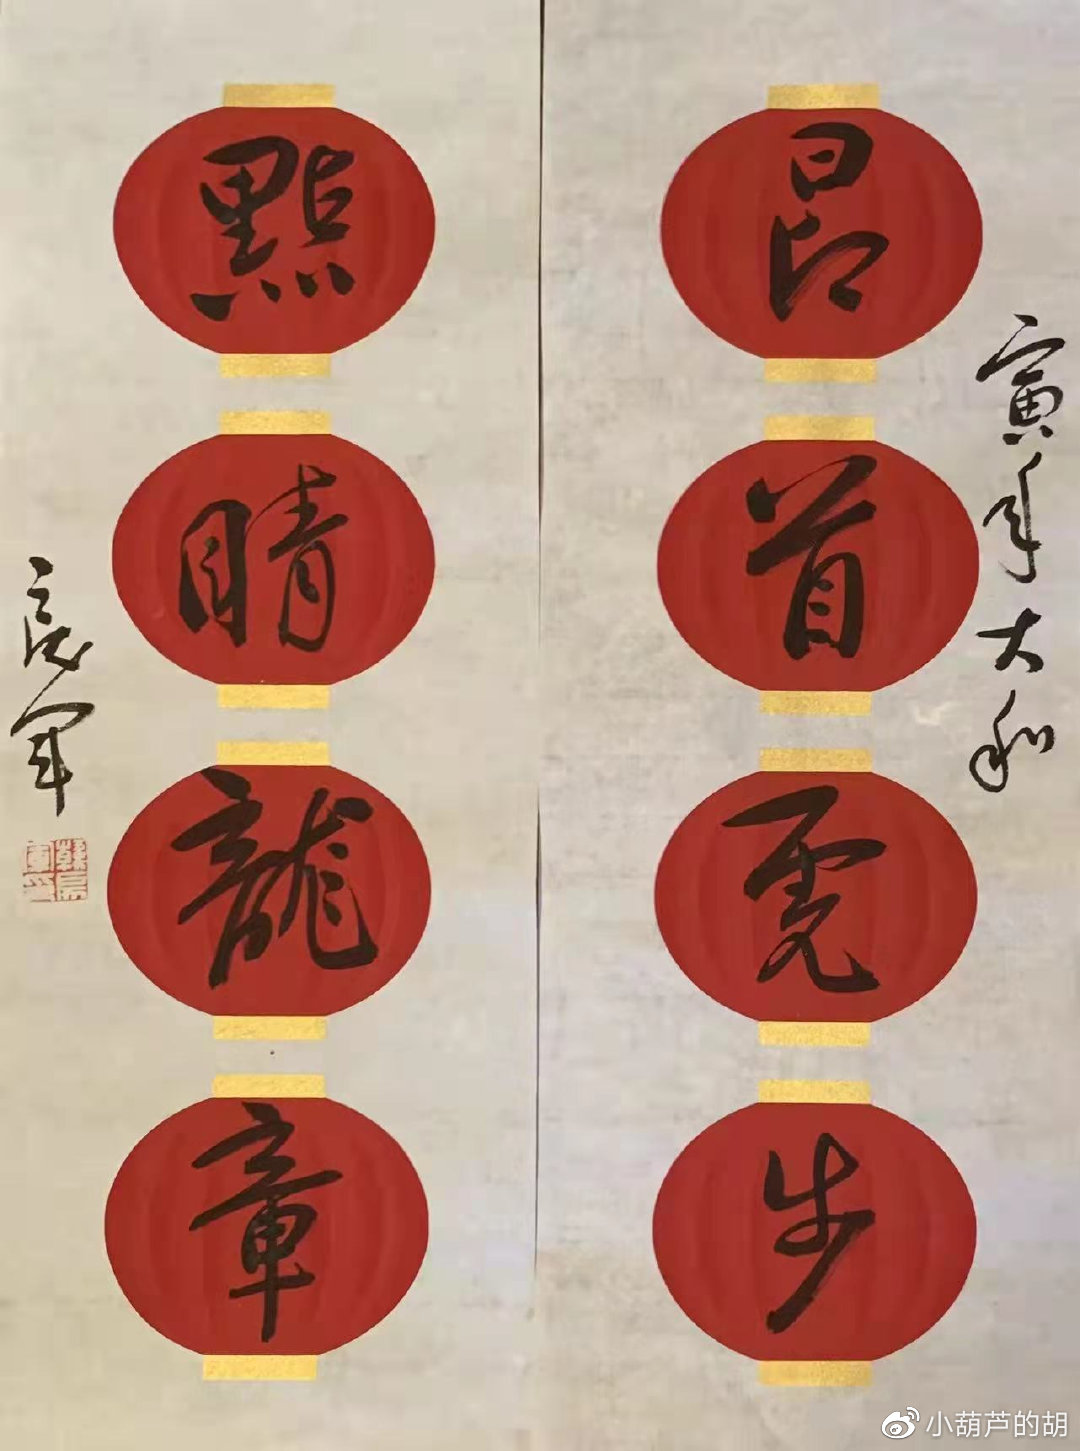 寅年大和
昂首虎步
點睛龍章
小葫芦的胡